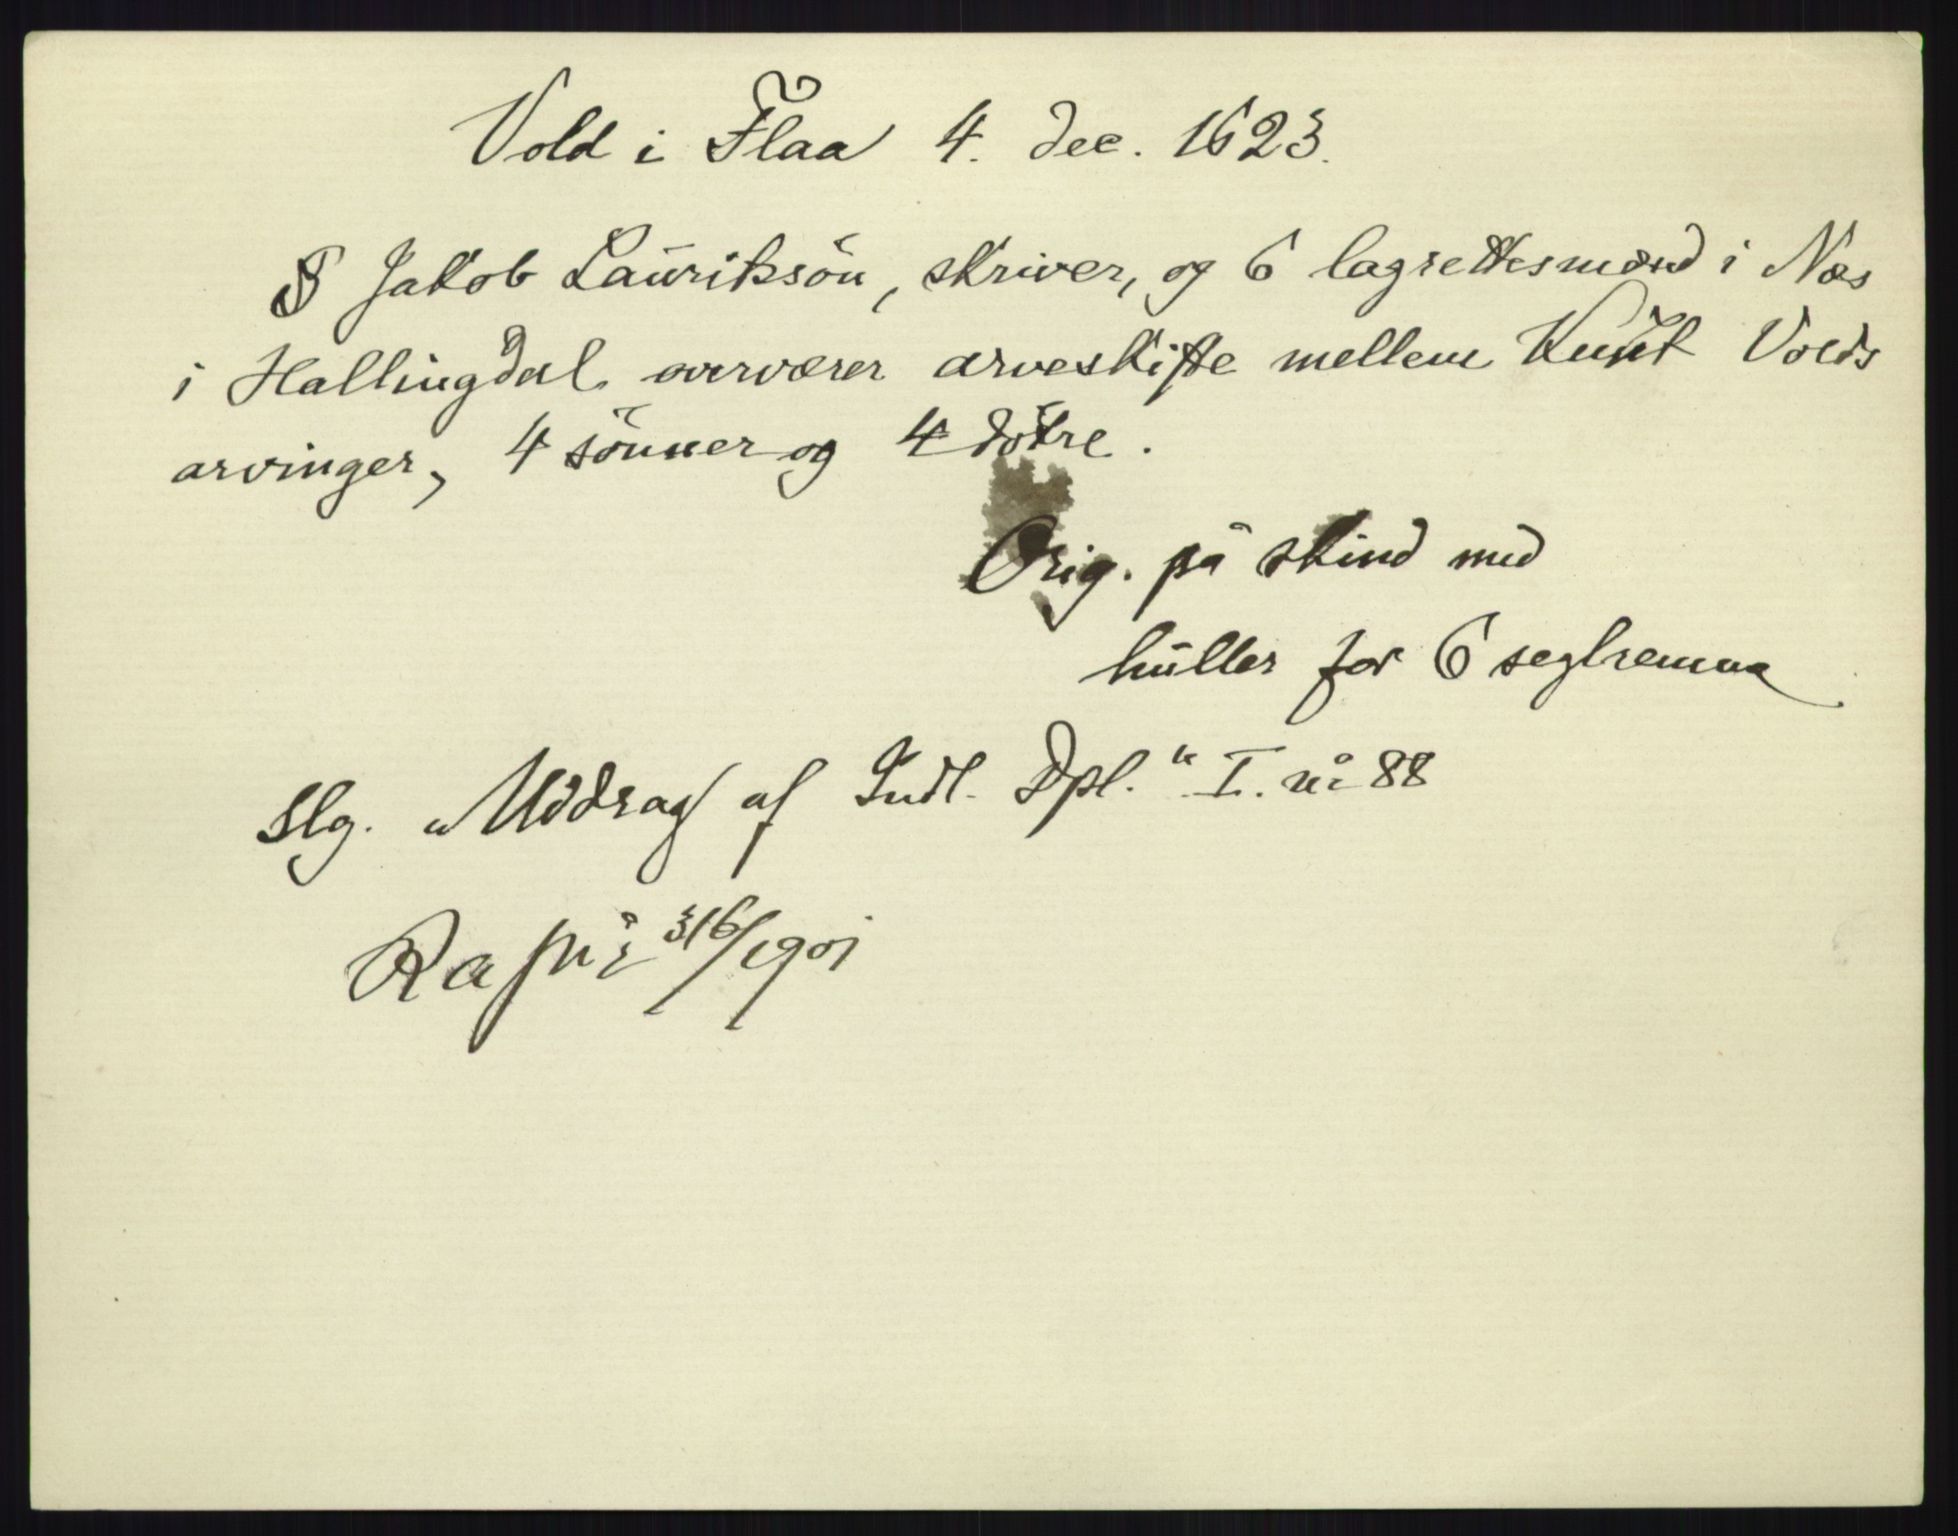 Vold i Flaa 4. dec. 1623.
Jakob Lauritssön, skriver, og 6 lagrettesmænd i Næs
i Hallingdal overværer arveskifte mellem Knut Volds
arvinger, 4 sönner og 4 dötre.
Orig. på skind med
huller for 6 seglremme
Slg. „Uddrag af Indl. Dpl." I. nr 88
Ra 316/1901